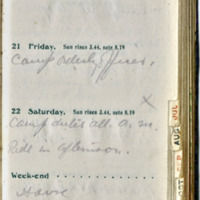 21 Friday. Sun rises 3.44, sets 8.19
Camp Orderly Officer.
22 Saturday. Sun rises 3.44, sets 8.19
X
Camp duties all a.m.
Ride in afternoon.
Week-end
JUL
AUG
SEP
OCT